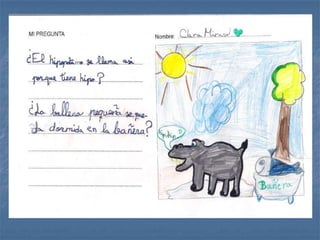 MI PREGUNTA
¿El hipopótamo se llama así
porque tiene hipo?
¿La ballena pequeña se que-
da dormida en la bañera?
Nombre Clara
Bañera